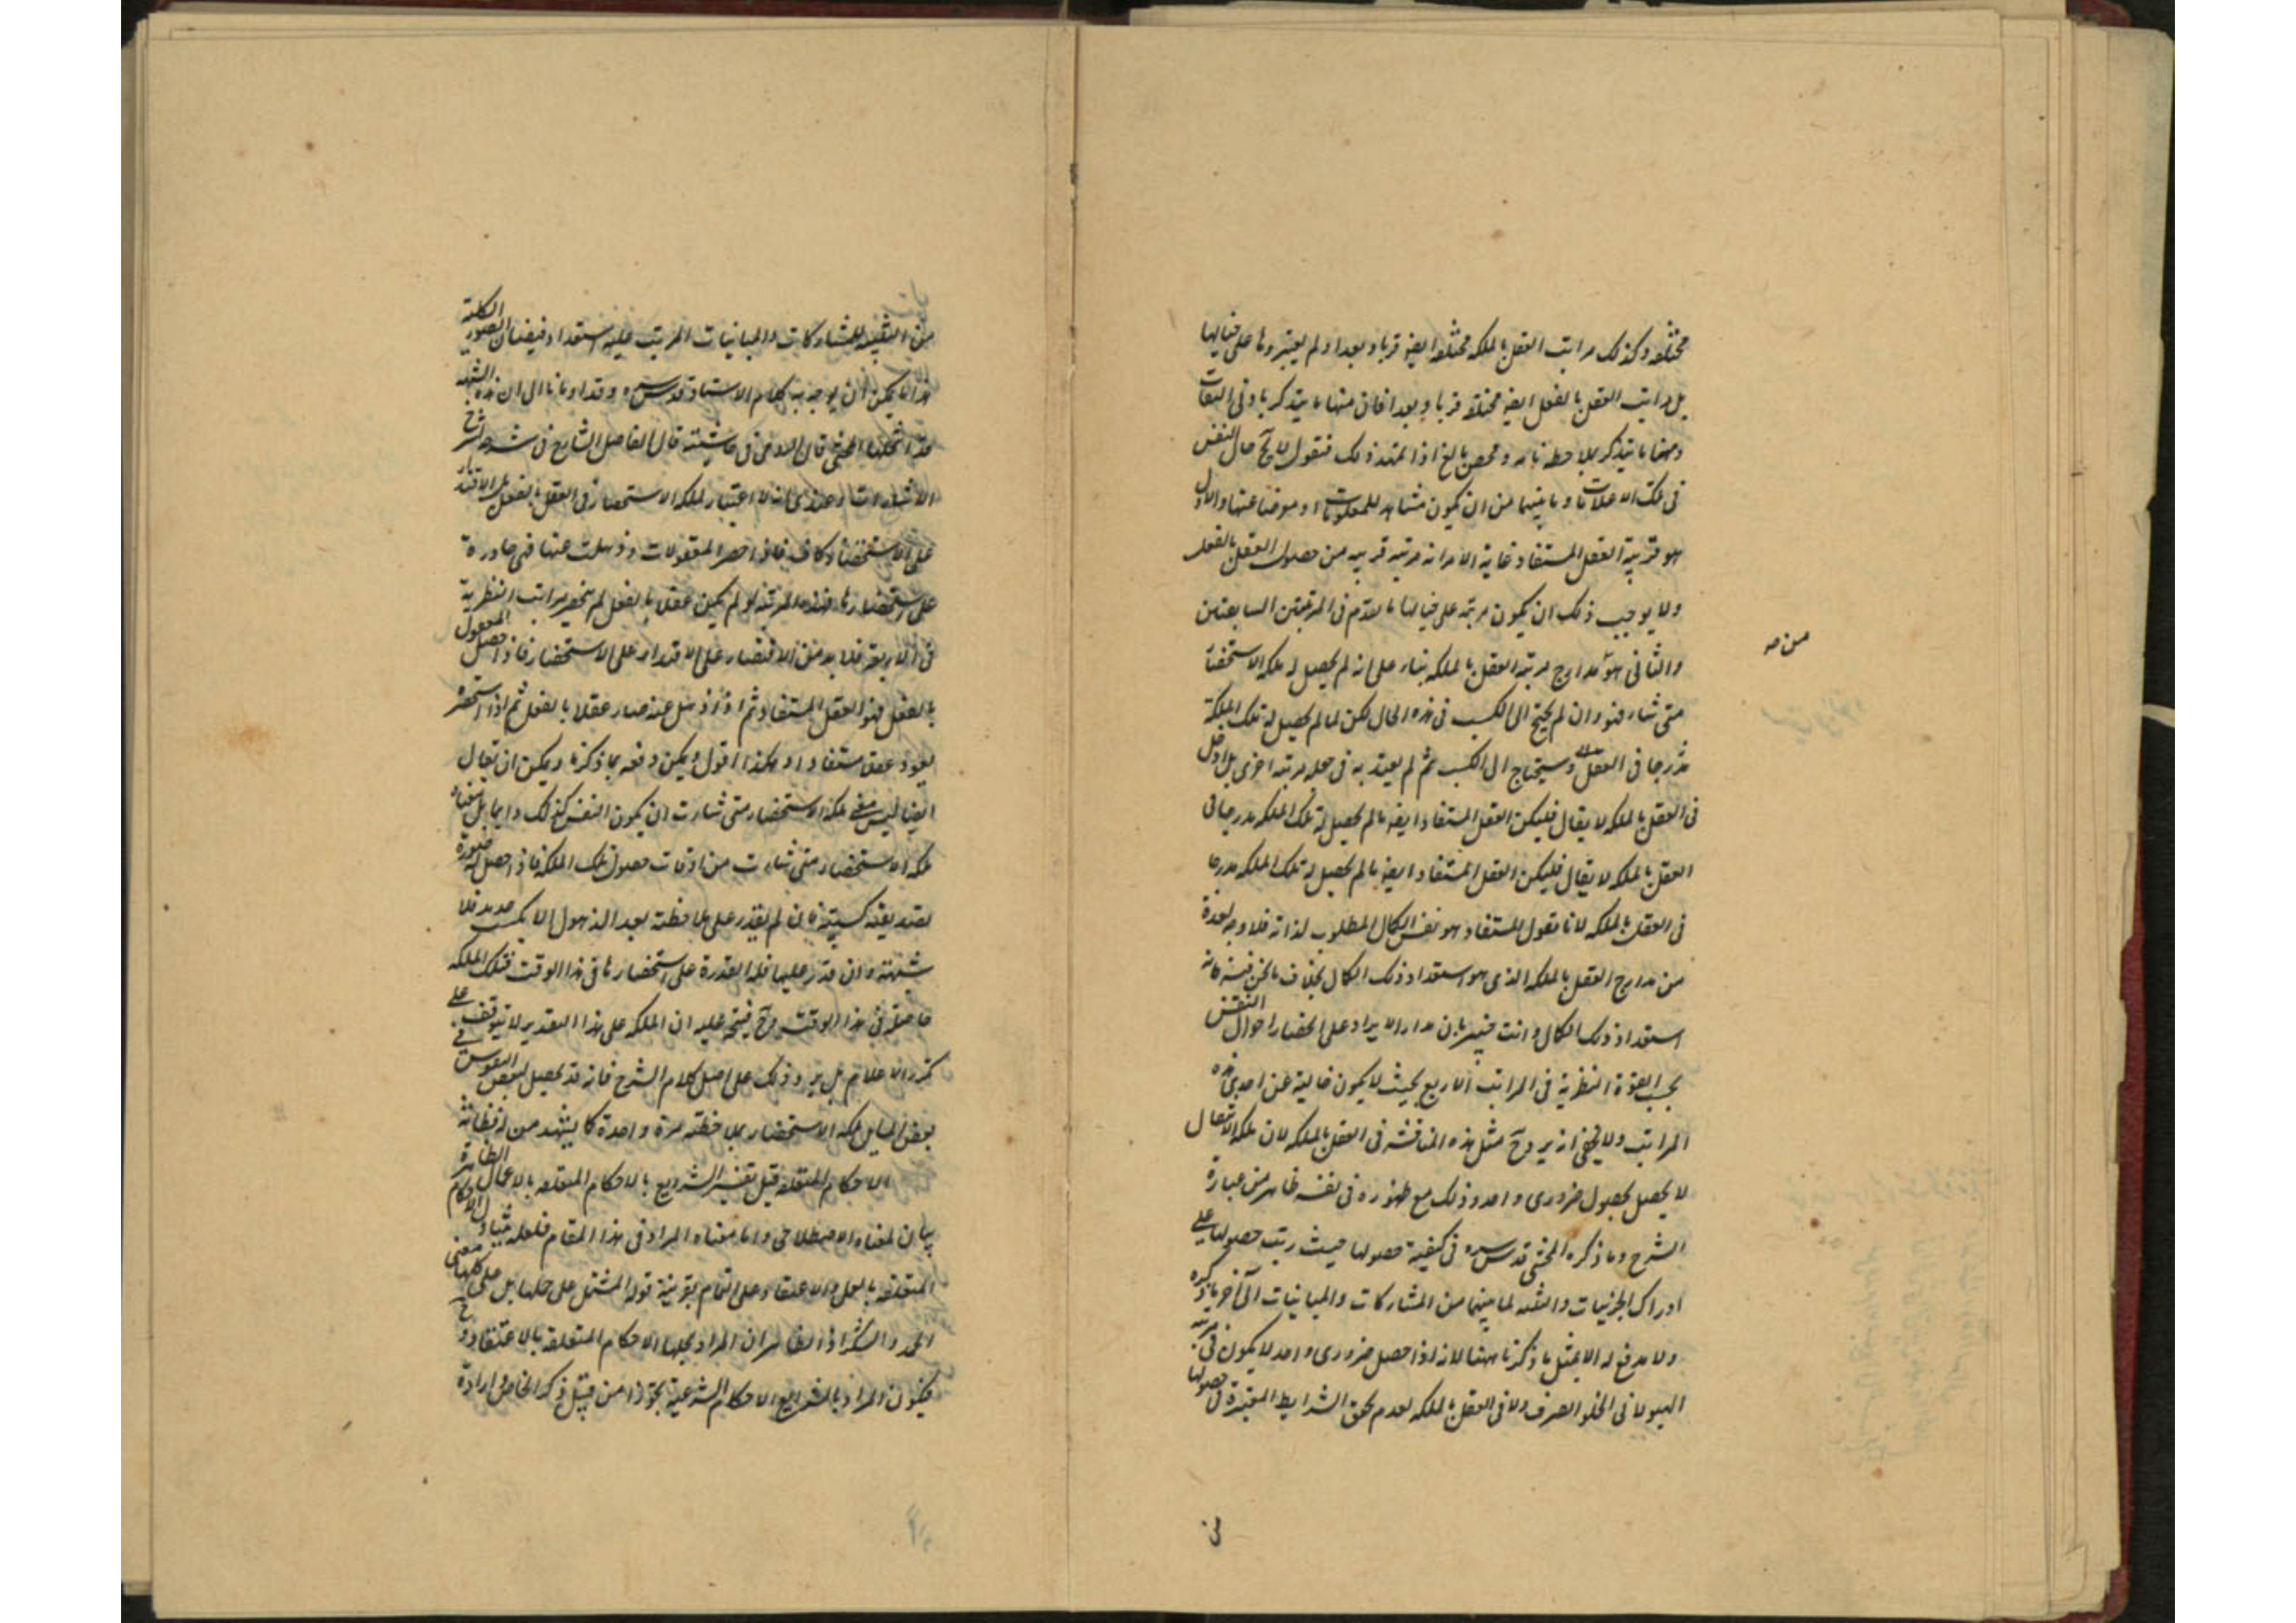 مختلفه وكذلك مراتب العقل بالملكه مختلفه ايضه قربا وبعدا ولم يعتبروها على حيالها
بل مراتب العقل بالفعل ايضه مختلفه قربا وبعدا فان منها ما يتذكر بادنى التفات
ومنها ما يتذكر بملاحظه تامه و بالغ اذا تمهد ذلك فنقول لا يخ حال النفس
فى تلك الادراكات وما بينهما من ان يكون مشاهد للمعقولات او معرضا عنها والاول
هو مرتبة العقل المستفاد غاية الامر انه مرتبه قريبه من حصول العقل بالفعل
ولا يوجب ذلك ان يكون مرتبه على حيالها ما تقدم فى المرتبتين السابقتين
والثانى هو مدارج مرتبه العقل بالملكه بناء على انه لم يحصل له ملكه الاستحضار
متى شاء فهو وان لم يحتج الى الكسب فى هذه الحال لكن لما لم يحصل له تلك الملكة
مندرجا فى العقل وسيحتاج الى الكسب ثم لم يعتد به فى جعله مرتبه اخرى بل ادخل
فى العقل بالملكه لا يقال فليكن العقل المستفاد ايضه ما لم يحصل له تلك الملكه مدرجا فى
العقل بالملكه لا يقال فليكن العقل المستفاد ايضه ما لم يحصل له تلك الملكه مدرجا
فى العقل بالملكه لانا نقول المستفاد هو نفس الكمال المطلوب لذاته فلا وجه لعده
من مدارج العقل بالملكه الذى هو استعداد ذلك الكمال بخلاف ما نحن فيه فانه
استعداد ذلك الكمال وانت خبير بان مدار الايراد على انحصار احوال النفس
بحسب القوة النظرية فى المراتب الاربع بحيث لا يكون خالية عن احدى هذه
المراتب ولا يخفى انه يرد ح مثل هذه المناقشه فى العقل بالملكه لان ملكه الانتقال
لا يحصل بحصول ضرورى واحد وذلك مع ظهوره فى نفسه ظاهر من عبارة
الشرح وما ذكره المحشى قدس سره فى كيفية حصولها حيث رتب حصولها على
ادراك الجزئيات والتنبه لما بينهما من المشاركات والمباينات الى آخر ما ذكره
ولا مدفع له الا بمثل ما ذكرنا ههنا لانه اذا حصل ضرورى واحد لا يكون فى مرتبه
الهيولانى الخلو الصرف ولا فى العقل بالملكه لعدم تحقق الشرايط المعتبرة فى حصولها
من صه
من التنبه للمشاركات والمباينات المرتب عليه استعداد فيضان الصور الكلية
هذا ما يمكن ان يوجه به كلام الاستاد قدس سره وقد اومانا الى ان هذه الشبهه
قد المحشى قال فى حاشيته قال الفاضل الشارح فى شرحه لشرح
الاشارات وعندى انه لا اعتبار لملكه الاستحضار فى العقل بالفعل بل الاقتدار
على الاستحضار كاف فاذا احضر المعقولات وذهلت عنها فهى قادرة
على استحضارها فهذه المرتبه لو لم يكن عقلا بالفعل لم ينحصر مراتب النظرية
فى الاربعة فلا بد من الاقتصار على الاقتدار على الاستحضار فاذا حصل المعقول
بالفعل فهو العقل المستفاد ثم اذا ذهل عنه صار عقلا بالفعل ثم اذا استحضره
يعود عقلا مستفادا وهكذا اقول ويمكن دفعه بما ذكرنا ويمكن ان يقال
ايضا ليس معنى ملكه الاستحضار متى شاءت ان يكون النفس كذلك دايما بل معناه
ملكه الاستحضار متى شاءت من اوقات حصول تلك الملكة فاذا حصل له صورة
تصديقيه كسبيه فان لم يقدر على ملاحظته بعد الذهول الا بكسب جديد فلا
شبهته وان قدر عليها فله القدرة على استحضارها فى هذا الوقت فتلك الملكه
حاصلة فى هذا الوقت وح فيتجه عليه ان الملكه على هذا التقدير لا يتوقف على
تكرر بل يرد ذلك على اصل كلام الشرح فانه قد يحصل لبعض النفوس فى
بعض المسايل ملكه الاستحضار بملاحظته مرة واحدة كما يشهد من
الاحكام المتعلقه قيل تفسير الشرايع بالاحكام المتعلقه بالاعمال الظاهرة
بيان لمعناه الاصطلاحى واما معناه المراد فى هذا المقام فلعله يتناول الاحكام
المتعلقه بالعمل والاعتقاد على التمام بقرينة قوله المشتمل على جلها بل على كلها معنى
الحمد والشكر اذ الظاهر ان المراد بجلها الاحكام المتعلقه بالاعتقاد و ح
فيكون المراد بالشرايع الاحكام الشرعية تجوزا من قبيل ذكر الخاص وارادة